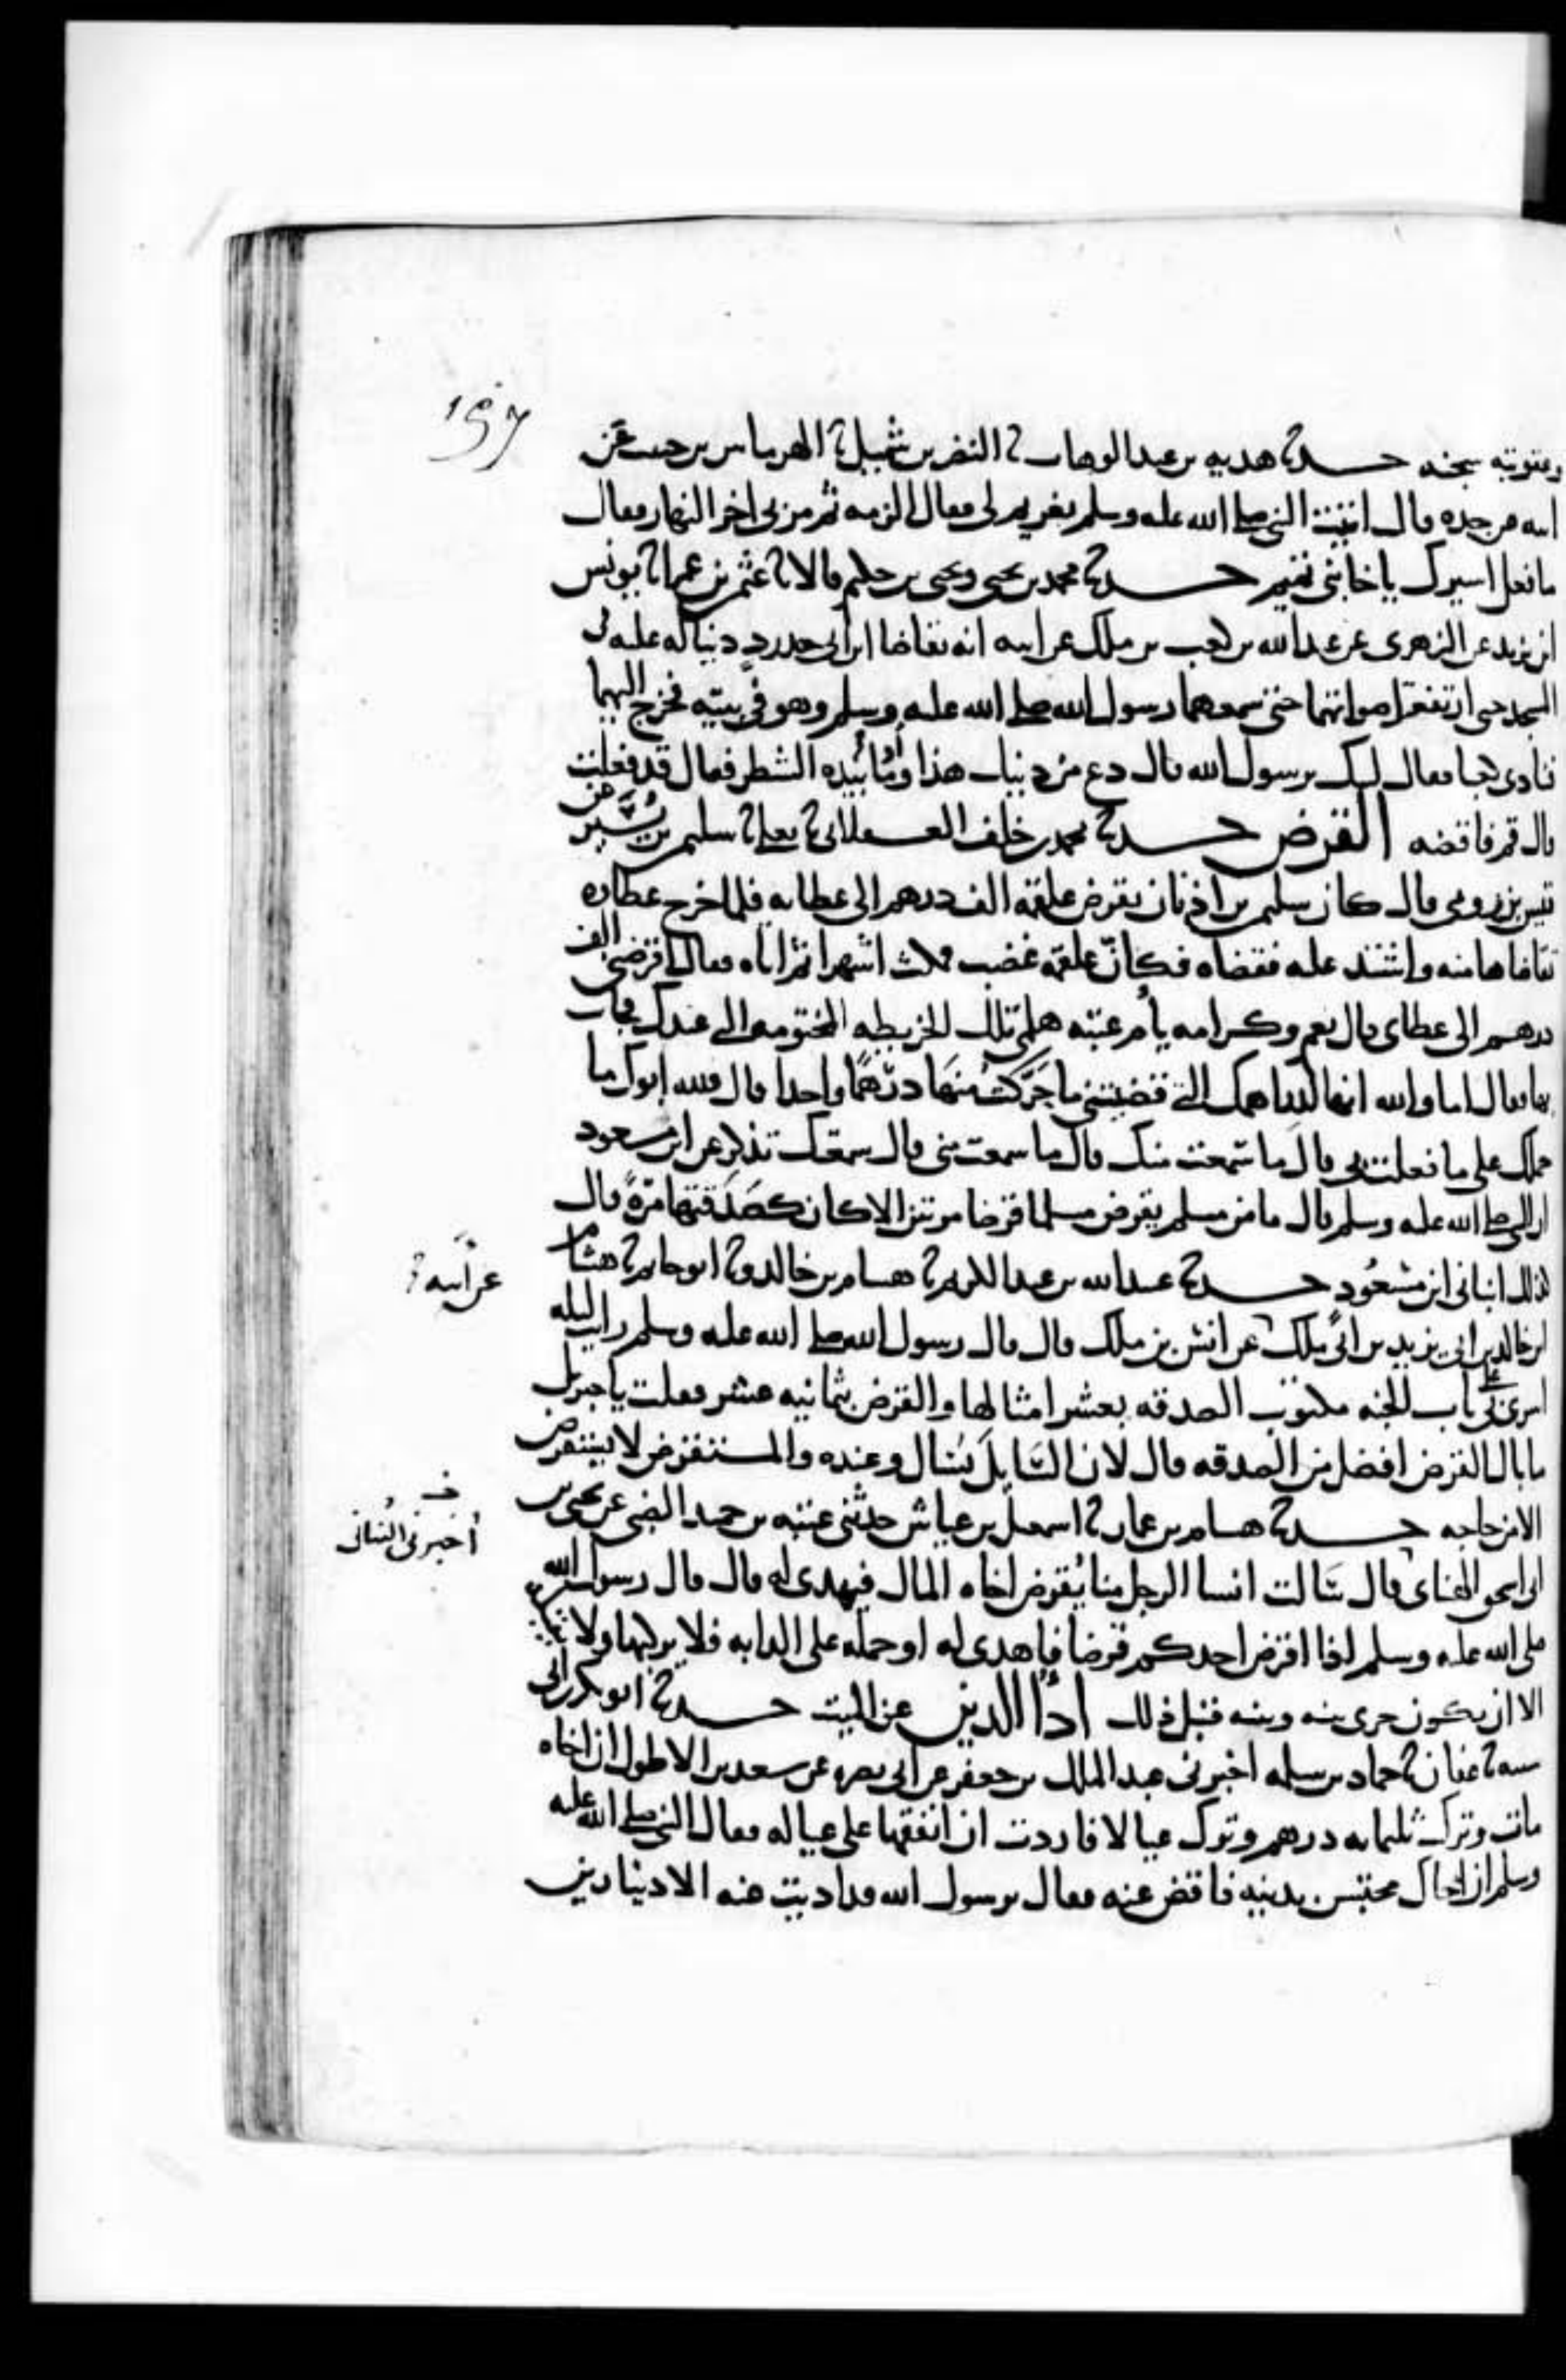 ١٥٧
وعقوبته سجنه حدثنا هديه بن عبد الوهاب ثنا النضر بن شميل ثنا الهرماس بن حبيب عن
ابيه عن جده قال اتيت النبي صلى الله عليه وسلم بغريم لي فقال الزمه ثم مر بي اخر النهار فقال
ما فعل اسيرك يا اخا بني تميم حدثنا محمد بن يحيى ويحيى بن حكيم قالا ثنا عثمن بن عمر انا يونس
ابن يزيد عن الزهري عن عبد الله بن كعب بن ملك عن ابيه انه تقاضا ابن ابي حدرد دينا له عليه في
المسجد حتى ارتفعت اصواتهما حتى سمعهما رسول الله صلى الله عليه وسلم وهو في بيته فخرج اليهما
فنادى كعبا فقال لبيك يرسول الله قال دع من دينك هذا واوما بيده الشطر فقال قد فعلت
قال قم فاقضه القرض حدثنا محمد بن خلف العسقلاني ثنا يعلى ثنا سليم بن يسير عن
قيس بن رومي قال كان سليم بن اذنان يقرض علقمه الف درهم الى عطايه فلما خرج عطاوه
تقاضاها منه واشتد عليه فقضاه فكان علقمه غضب فمكث اشهرا ثم اتاه فقال اقرضني الف
درهم الى عطاي قال نعم وكرامه يا ام عتبه هلمي تلك الخريطه المختومه التي عندك فجات
بها فقال اما والله انها لدراهمك التي قضيتني ما حركت منها درهما واحدا قال فلله ابوك ما
حملك على ما فعلت بي قال ما سمعت منك قال ما سمعت مني قال سمعتك تذكر عن ابن مسعود
ان النبي صلى الله عليه وسلم قال ما من مسلم يقرض مسلما قرضا مرتين الا كان كصدقتها مرة قال
كذلك انباني ابن مسعود حدثنا عبيد الله بن عبد الكريم ثنا هشام بن خالد وثنا ابو حاتم ثنا هشام
عن ابيه
ابن خالد بن ابي يزيد بن ابي ملك عن انس بن ملك قال قال رسول الله صلى الله عليه وسلم رايت ليله
اسري بي على باب الجنه مكتوب الصدقه بعشر امثالها والقرض بثمانيه عشر فقلت يا جبريل
ما بال القرض افضل من الصدقه قال لان السايل يسال وعنده والمستقرض لا يستقرض
الا من حاجه حدثنا هشام بن عمار ثنا اسمعيل بن عياش حدثني عتبه بن حميد الضبي عن يحيى بن
ابي اسحق الهناي قال سالت انسا الرجل منا يقرض اخاه المال فيهدي له قال قال رسول الله
صلى الله عليه وسلم اذا اقرض احدكم قرضا فاهدى له او حمله على الدابه فلا يركبها ولا
الا ان يكون جرى بينه وبينه قبل ذلك ادا الدين عن الميت حدثنا ابو بكر بن ابي
شيبه ثنا عفان ثنا حماد بن سلمه اخبرني عبد الملك بن جعفر عن ابي نضره عن سعد بن الاطول ان اخاه
مات وترك ثلثمايه درهم وترك عيالا فاردت ان انفقها على عياله فقال النبي صلى الله عليه
وسلم ان اخاك محتبس بدينه فاقض عنه فقال يرسول الله قد اديت عنه الا دينارين